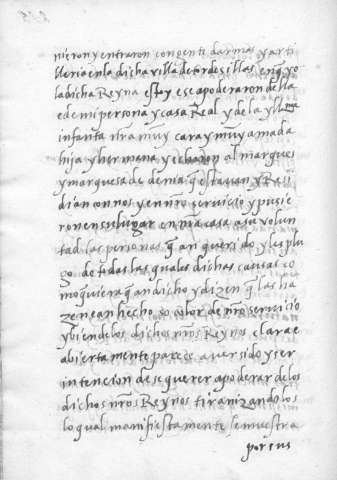 nieron y entraron con gente darmas y arti
lleria en la dicha villa de tordesillas en q̃ yo
la dicha Reyna estoy e se apoderaron della
e de mi persona y casa Real y de la yllma
infanta nra muy cara y muy amada
hija y hermana y echaron al marques
y marquesa de denia q̃ estavan y Resi
dian con nos y en nro servicio y pusie
ron en su lugar en nra casa a su volun
tad las personas q̃ an querido y les plu
go de todas las quales dichas causas co
mo quiera q̃ an dicho y dizen q̃ las ha
zen e an hecho so color de nro servicio
y bien de los dichos nros Reynos clara e
abiertamente parece aver sido y ser
intencion de se querer apoderar de los
dichos nros Reynos tiranizandolos
lo qual manifiestamente se muestra
por sus